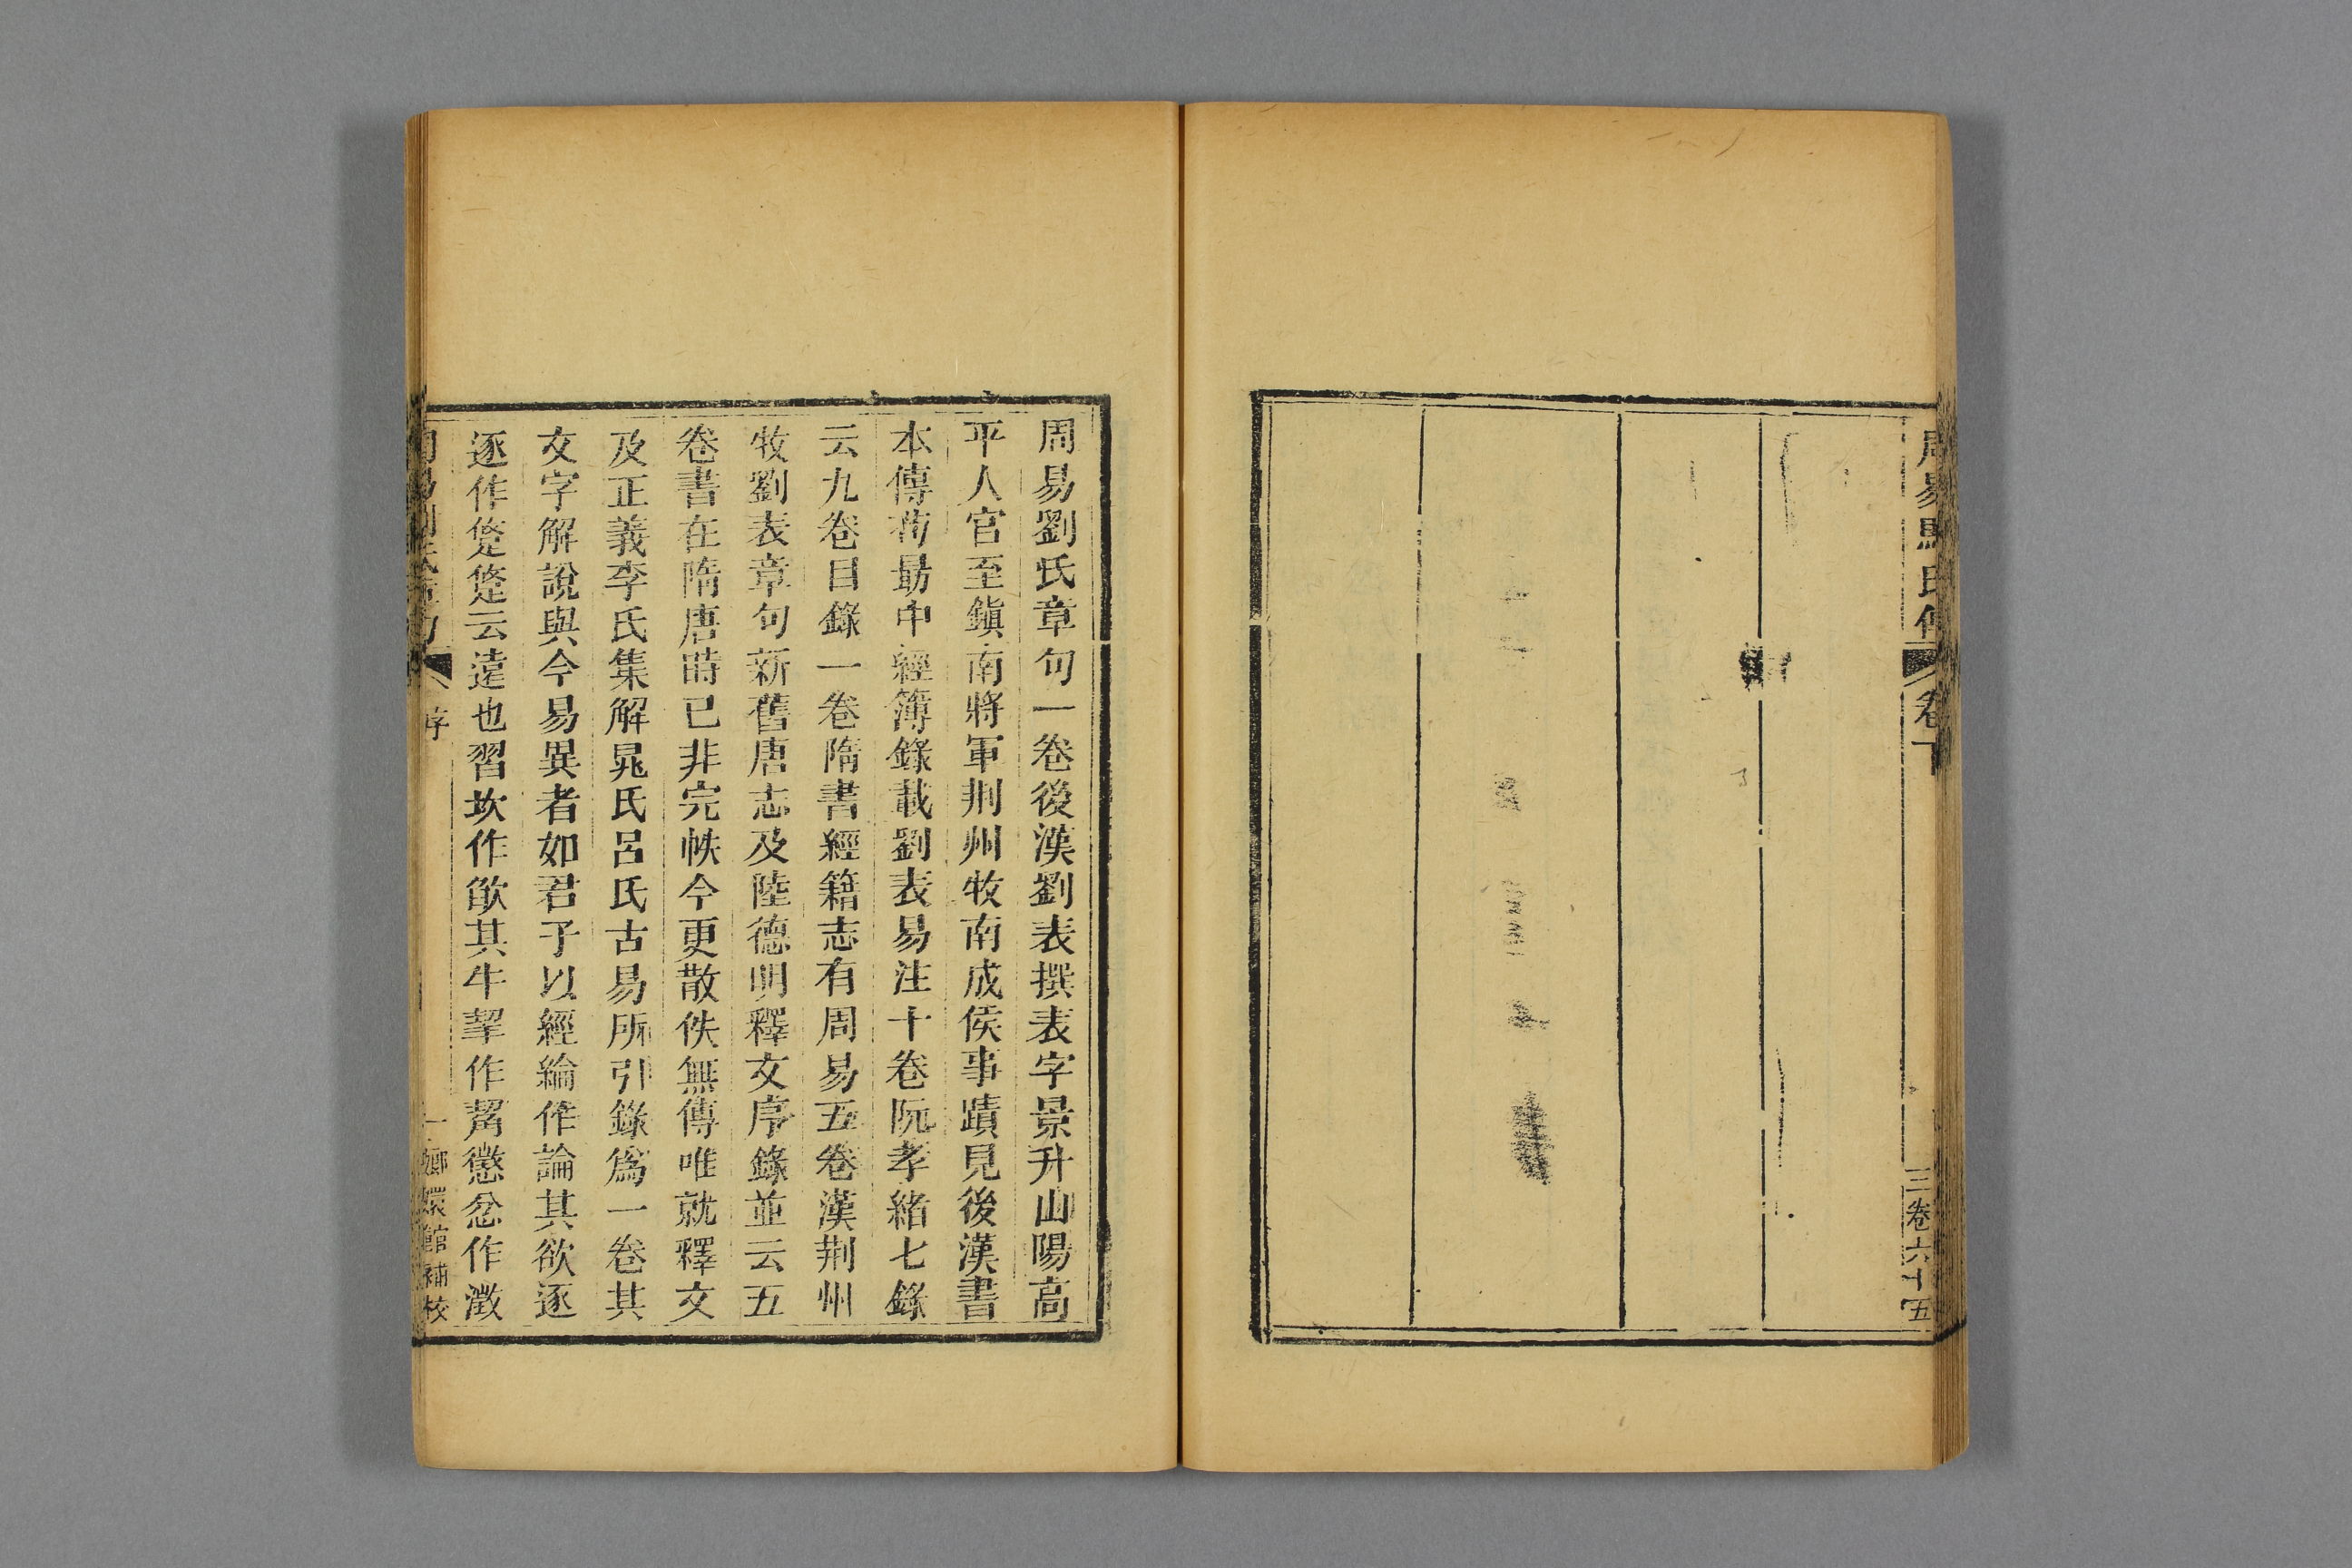 周易馬氏傳 卷下 三 卷六十五
周易劉氏章句一卷後漢劉表撰表字景升山陽高
平人官至鎮南將軍荆州牧南成侯事蹟見後漢書
本傳荀勗中經簿錄載劉表易注十卷阮孝緒七錄
云九卷目錄一卷隋書經籍志有周易五卷漢荆州
牧劉表章句新舊唐志及陸德明釋文序錄並云五
卷書在隋唐時已非完帙今更散佚無傳唯就釋文
及正義李氏集解晁氏呂氏古易所引錄爲一卷其
文字解說與今易異者如君子以經綸作論其欲逐
逐作跾跾云遠也習坎作欿其牛掣作觢懲忿作澂
周易劉氏章句 序 一 嫏嬛館補校